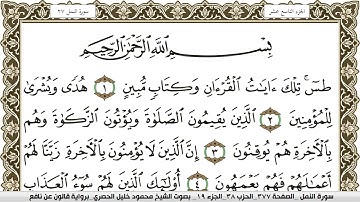 سورة النمل ٢٧
الجزء التاسع عشر
بِسْمِ اللَّهِ الرَّحْمَٰنِ الرَّحِيمِ
طسٓ تِلْكَ ءَايَٰتُ الْقُرْءَانِ وَكِتَابٍ مُّبِينٍ ١ هُدًى وَبُشْرَىٰ
لِلْمُؤْمِنِينَ ٢ الَّذِينَ يُقِيمُونَ الصَّلَوٰةَ وَيُؤْتُونَ الزَّكَوٰةَ وَهُم
بِالْأَخِرَةِ هُمْ يُوقِنُونَ ٣ إِنَّ الَّذِينَ لَا يُؤْمِنُونَ بِالْأَخِرَةِ زَيَّنَّا لَهُمْ
أَعْمَٰلَهُمْ فَهُمْ يَعْمَهُونَ ٤ أُوْلَٰٓئِكَ الَّذِينَ لَهُمْ سُوٓءُ الْعَذَابِ
سورة النمل _ الصفحة ٣٧٧ _ الحزب ٣٨ _ الجزء ١٩ _ بصوت الشيخ محمود خليل الحصري _ برواية قالون عن نافع